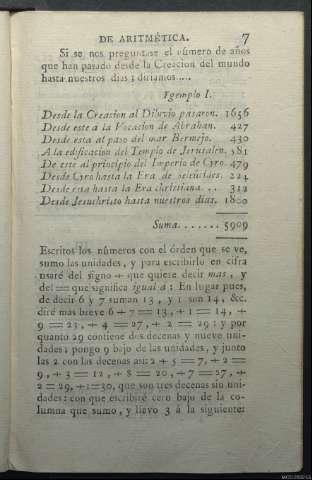 DE ARITMÉTICA. 7
Si se nos preguntase el número de años
que han pasado desde la Creacion del mundo
hasta nuestros dias ; diriamos ....
Egemplo I.
Desde la Creacion al Diluvio pasaron. 1656
Desde este a la Vocacion de Abrahan. 427
Desde esta al paso del mar Bermejo. 430
A la edificacion del Templo de Jerusalen. 481
De este al principio del Imperio de Cyro. 479
Desde Cyro hasta la Era de Seleucides. 224
Desde esta hasta la Era christiana. .. 312
Desde Jesuchristo hasta nuestros dias. 1800
Suma. . . . . . . 5909
Escritos los números con el órden que se ve,
sumo las unidades, y para escribirlo en cifra
usaré del signo + que quiere decir mas, y
del = que significa igual a : En lugar pues,
de decir 6 y 7 suman 13, y 1 son 14, &c.
diré mas breve 6 + 7 = 13, + 1 = 14, +
9 = 23, + 4 = 27, + 2 = 29 : y por
quanto 29 contiene dos decenas y nueve uni-
dades ; pongo 9 bajo de las unidades, y junto
las 2 con las decenas asi: 2 + 5 = 7, + 2 =
9, + 3 = 12, + 8 = 20, + 7 = 27, +
2 = 29, + 1 = 30, que son tres decenas sin uni-
dades : con que escribiré cero bajo de la co-
lumna que sumo, y llevo 3 á la siguiente: